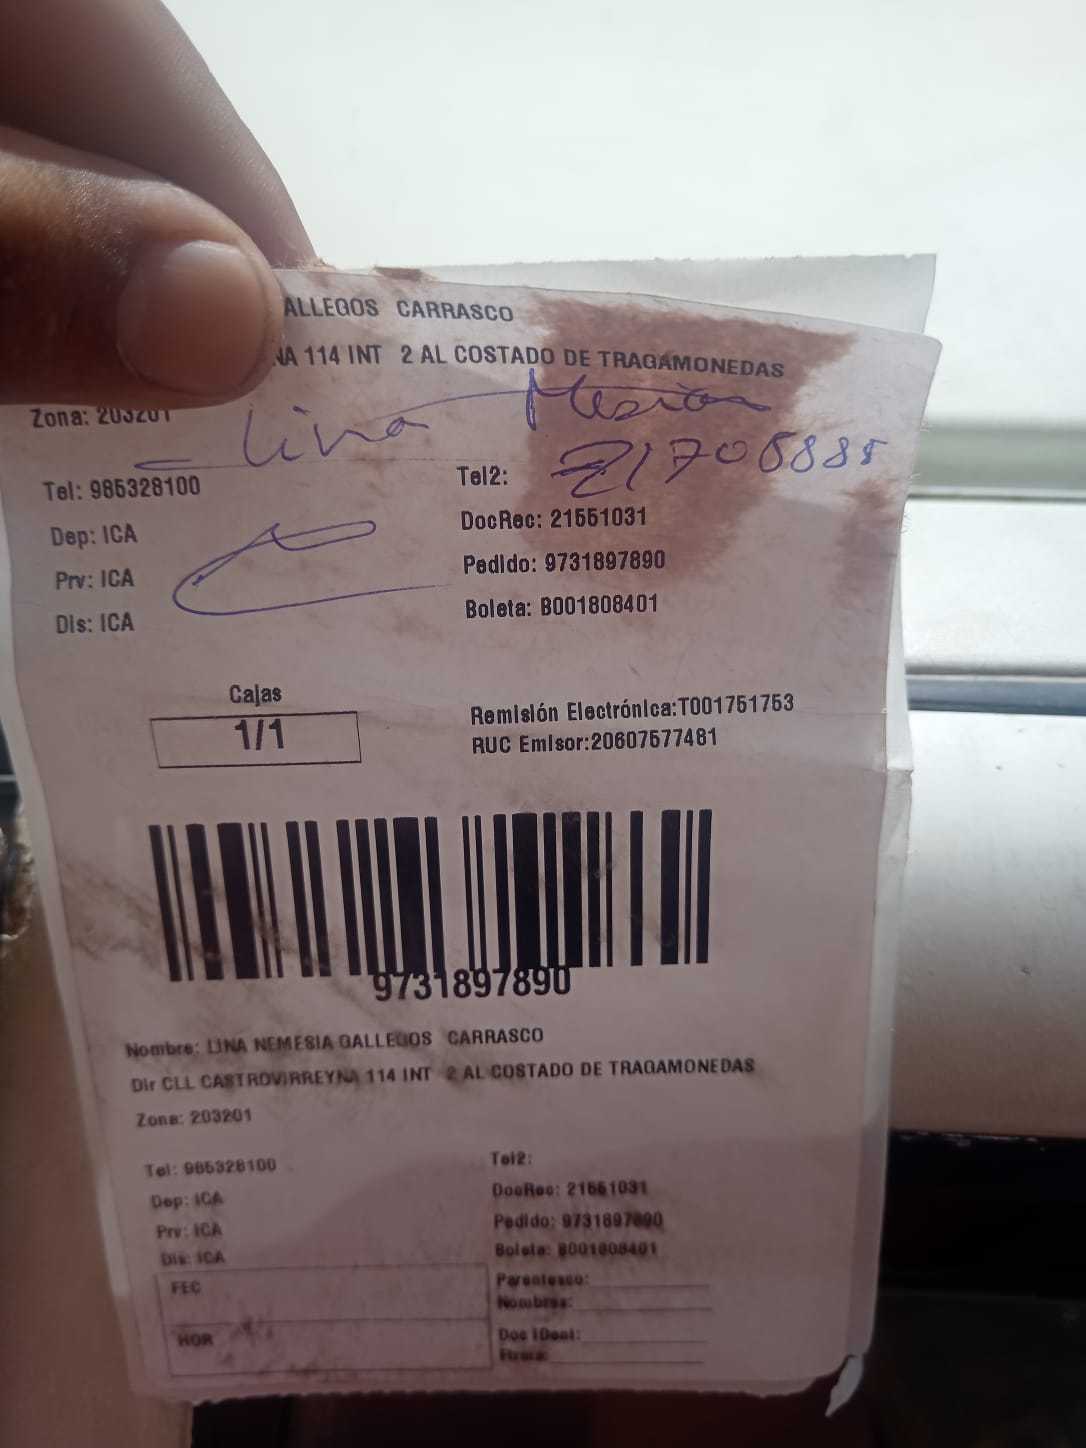 ALLEGOS CARRASCO
NA 114 INT 2 AL COSTADO DE TRAGAMONEDAS
Zona: 203201
Lina
Tel: 985328100
Tel2:
Dep: ICA
DocRec: 21551031
Prv: ICA
Pedido: 9731897890
Dis: ICA
Boleta: B001808401
Cajas
1/1
Remisión Electrónica:T001751753
RUC Emisor:20607577481
9731897890
Nombre: LINA NEMESIA GALLEGOS CARRASCO
Dir CLL CASTROVIRREYNA 114 INT 2 AL COSTADO DE TRAGAMONEDAS
Zona: 203201
Tel: 985328100
Tel2:
Dep: ICA
DocRec: 21551031
Prv: ICA
Pedido: 9731897890
Dis: ICA
Boleta: B001808401
FEC
Parentesco:
Nombres:
HOR
Doc IDent:
Firma: